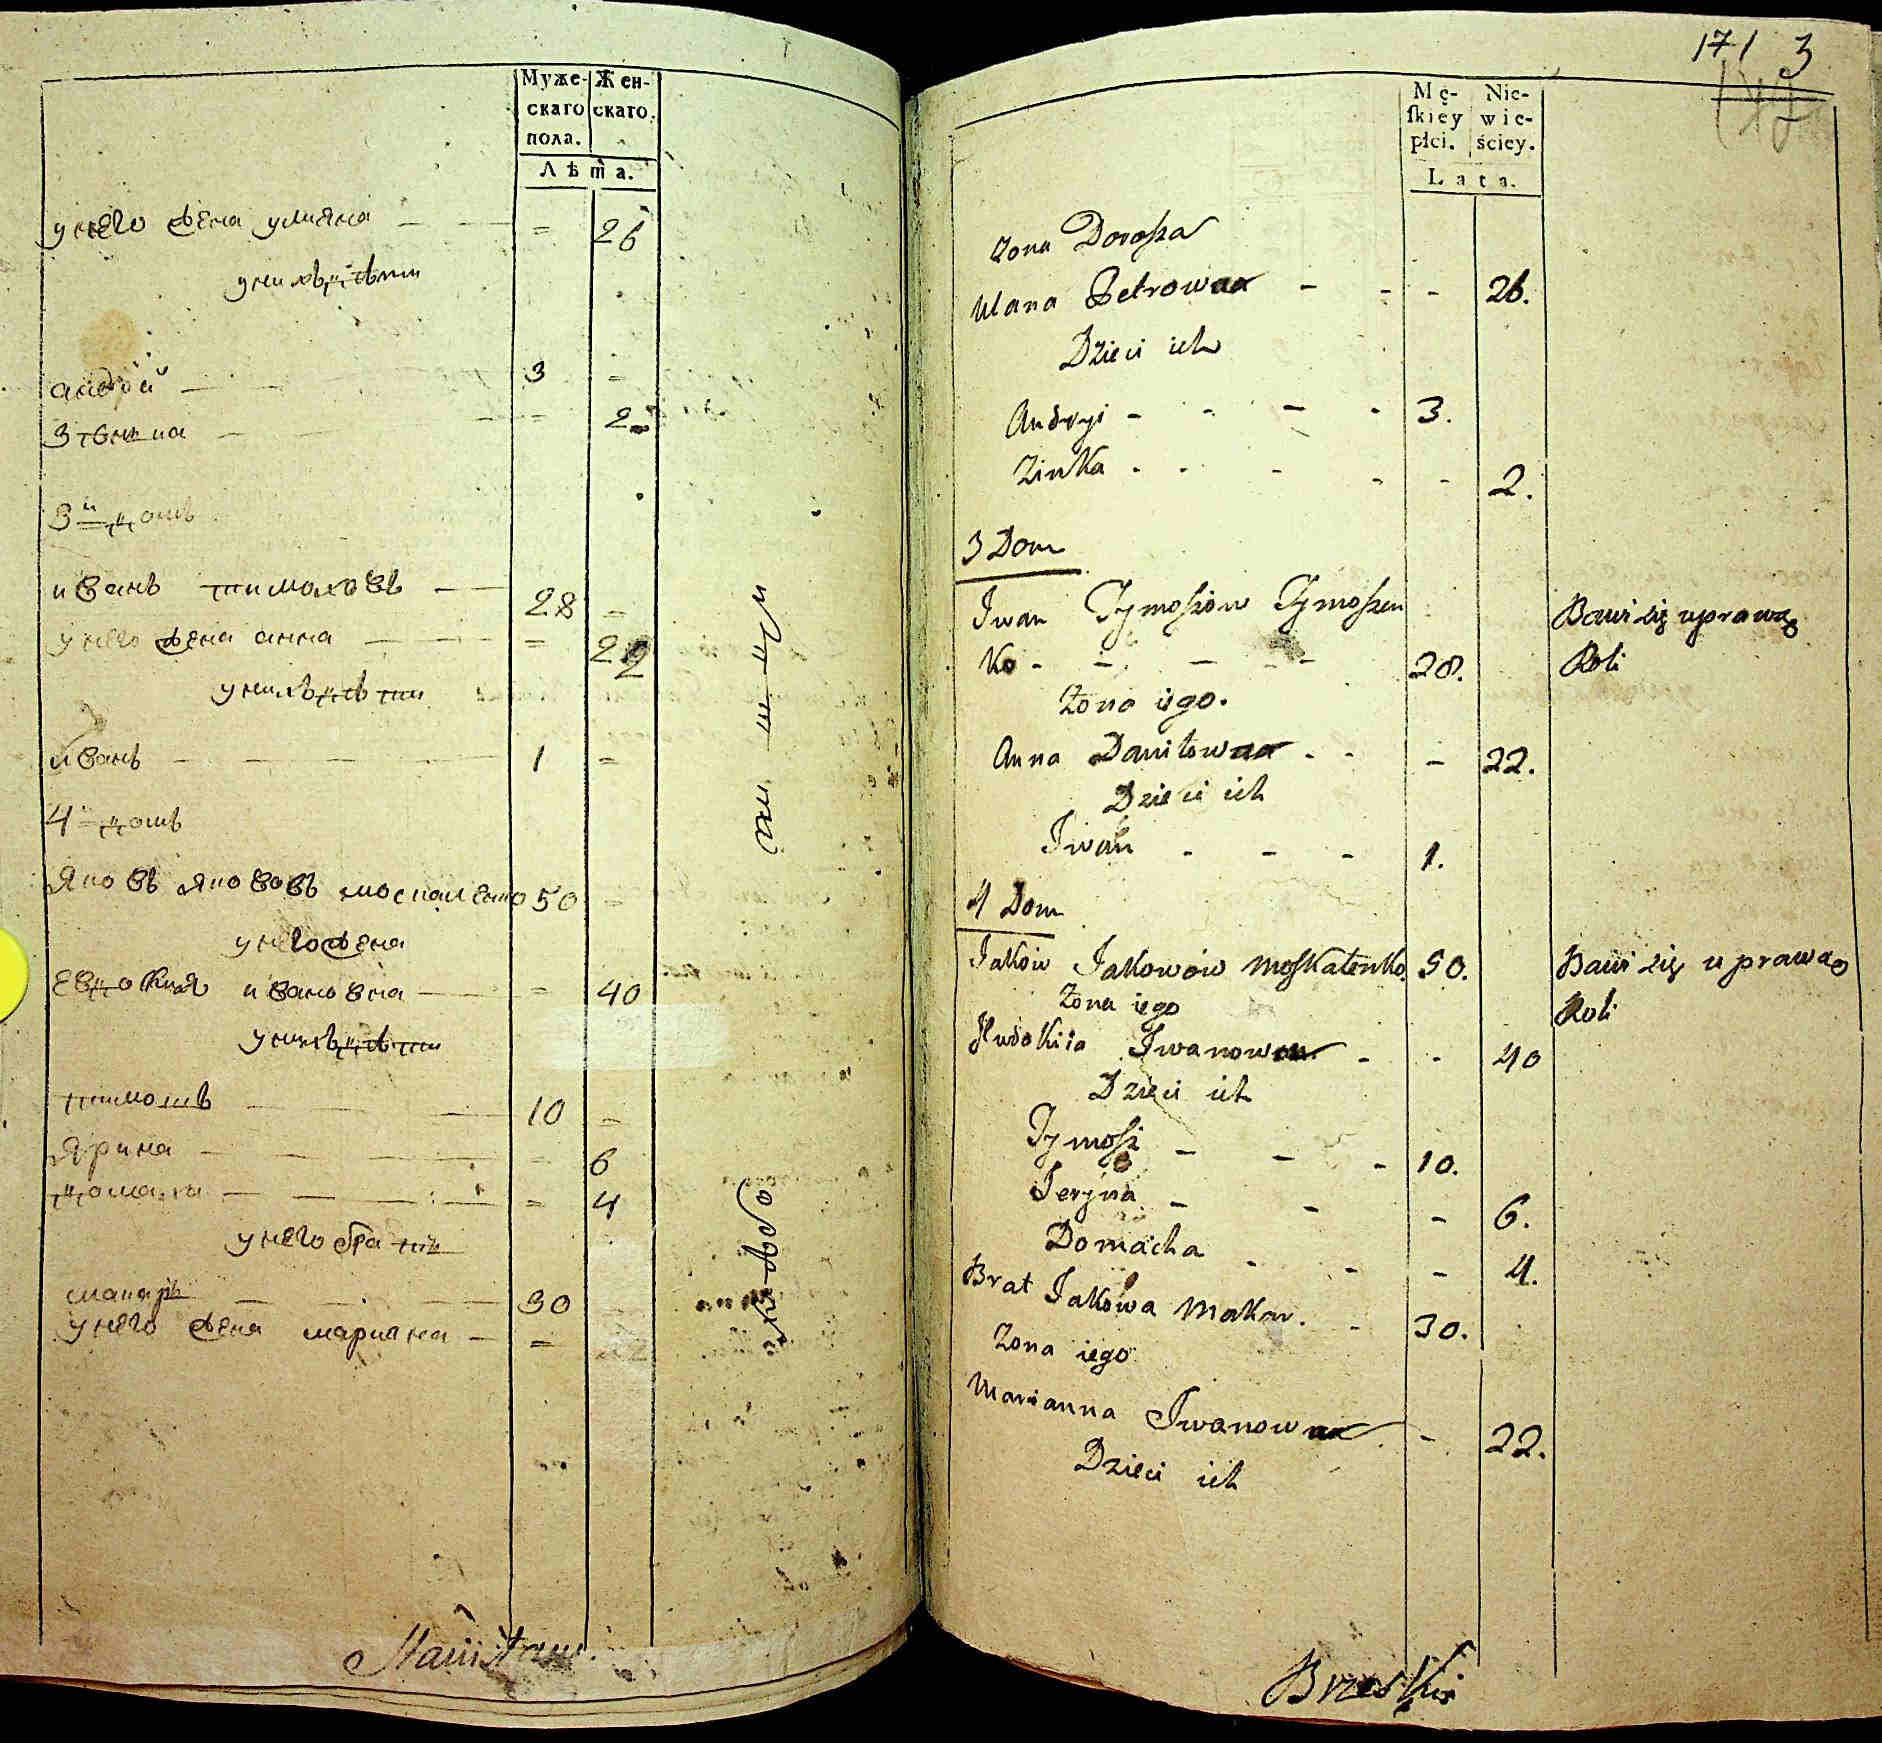 Муже-
скаго
пола.
Жен-
скаго.
Лѣта.
у него жена улияна — — = 26
у нихъ дѣти
андрѣй — — 3 =
— — = 2
3й домъ
иванъ тимоховъ — 28 =
у него жена анна — — = 22
у нихъ дѣти
иванъ — — — — 1 =
4й домъ
Яковъ Якововъ москаленко 50 =
у него жена
евдокия ивановна — = 40
у нихъ дѣти
тимошъ — — — 10 =
Ярина — — — — = 6
домаха — — — — = 4
у него братъ
макаръ — — — 30
у него жена марияна — =
171 3
Mę-
ſkiey
płci.
Nie-
wie-
ściey.
Lata.
Żona Dorosza
Ulana Petrowna - - - 26.
Dzieci ich
Andryi - - - - 3.
Zinka - - - - - 2.
3 Dom
Iwan Tymoszów Tymoszen
ko - - - - - 28.
Bawi się uprawą
Roli
Żona iego.
Anna Daniłowna - - - 22.
Dzieci ich
Iwan - - - 1.
4 Dom
Jakow Jakowow Moskalenko. 50.
Bawi się uprawą
Roli
Żona iego
Iwanowna - - 40
Dzieci ich
Tymosz - - - 10.
Jeryna - - - 6.
Domacha - - - 4.
Brat Jakowa Makar. - 30.
Żona iego
Marianna Iwanowna - 22.
Dzieci ich
Brzeski